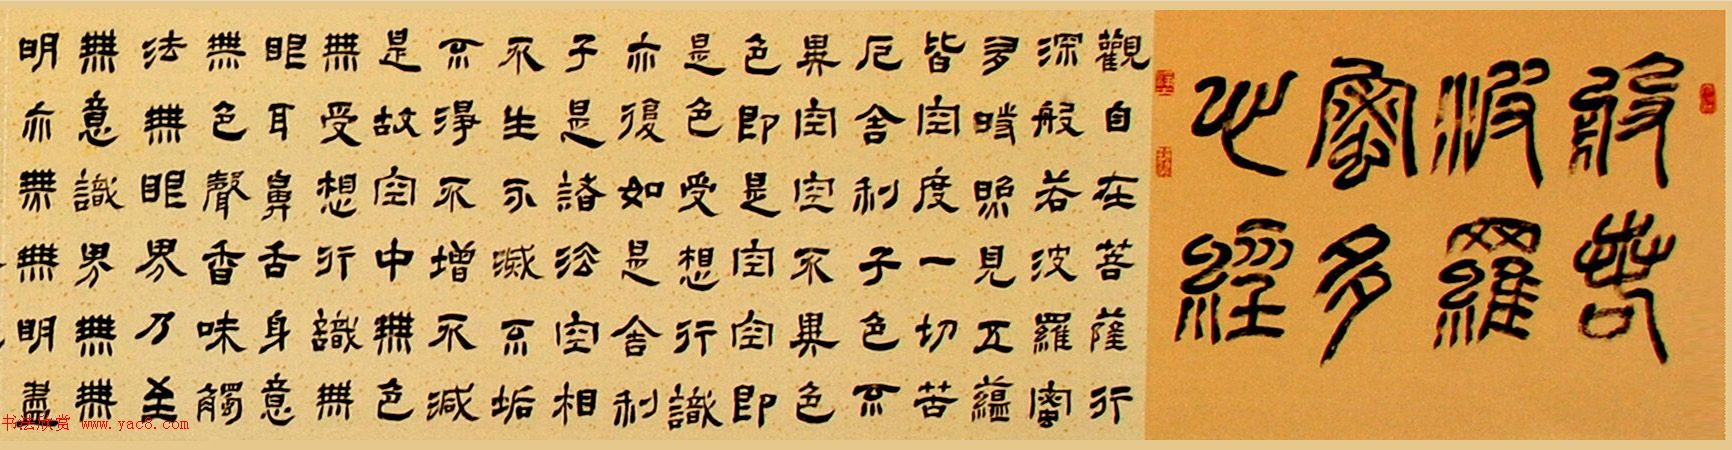 般若
波羅
蜜多
心經
觀自在菩薩行
深般若波羅蜜
多時照見五蘊
皆空度一切苦
厄舍利子色不
異空空不異色
色即是空空即
是色受想行識
亦復如是舍利
子是諸法空相
不生不滅不垢
不淨不增不減
是故空中無色
無受想行識無
眼耳鼻舌身意
無色聲香味觸
法無眼界乃至
無意識界無無
明亦無無明盡
书法欣赏 www.yac8.com